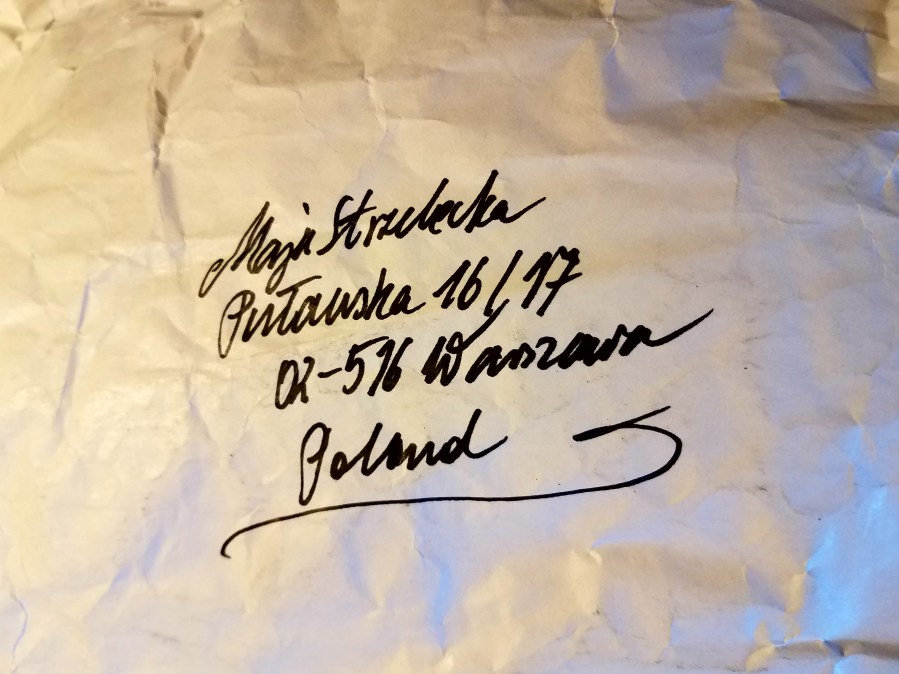 Maja Strzelecka
Puławska 16/17
02-516 Warszawa
Poland